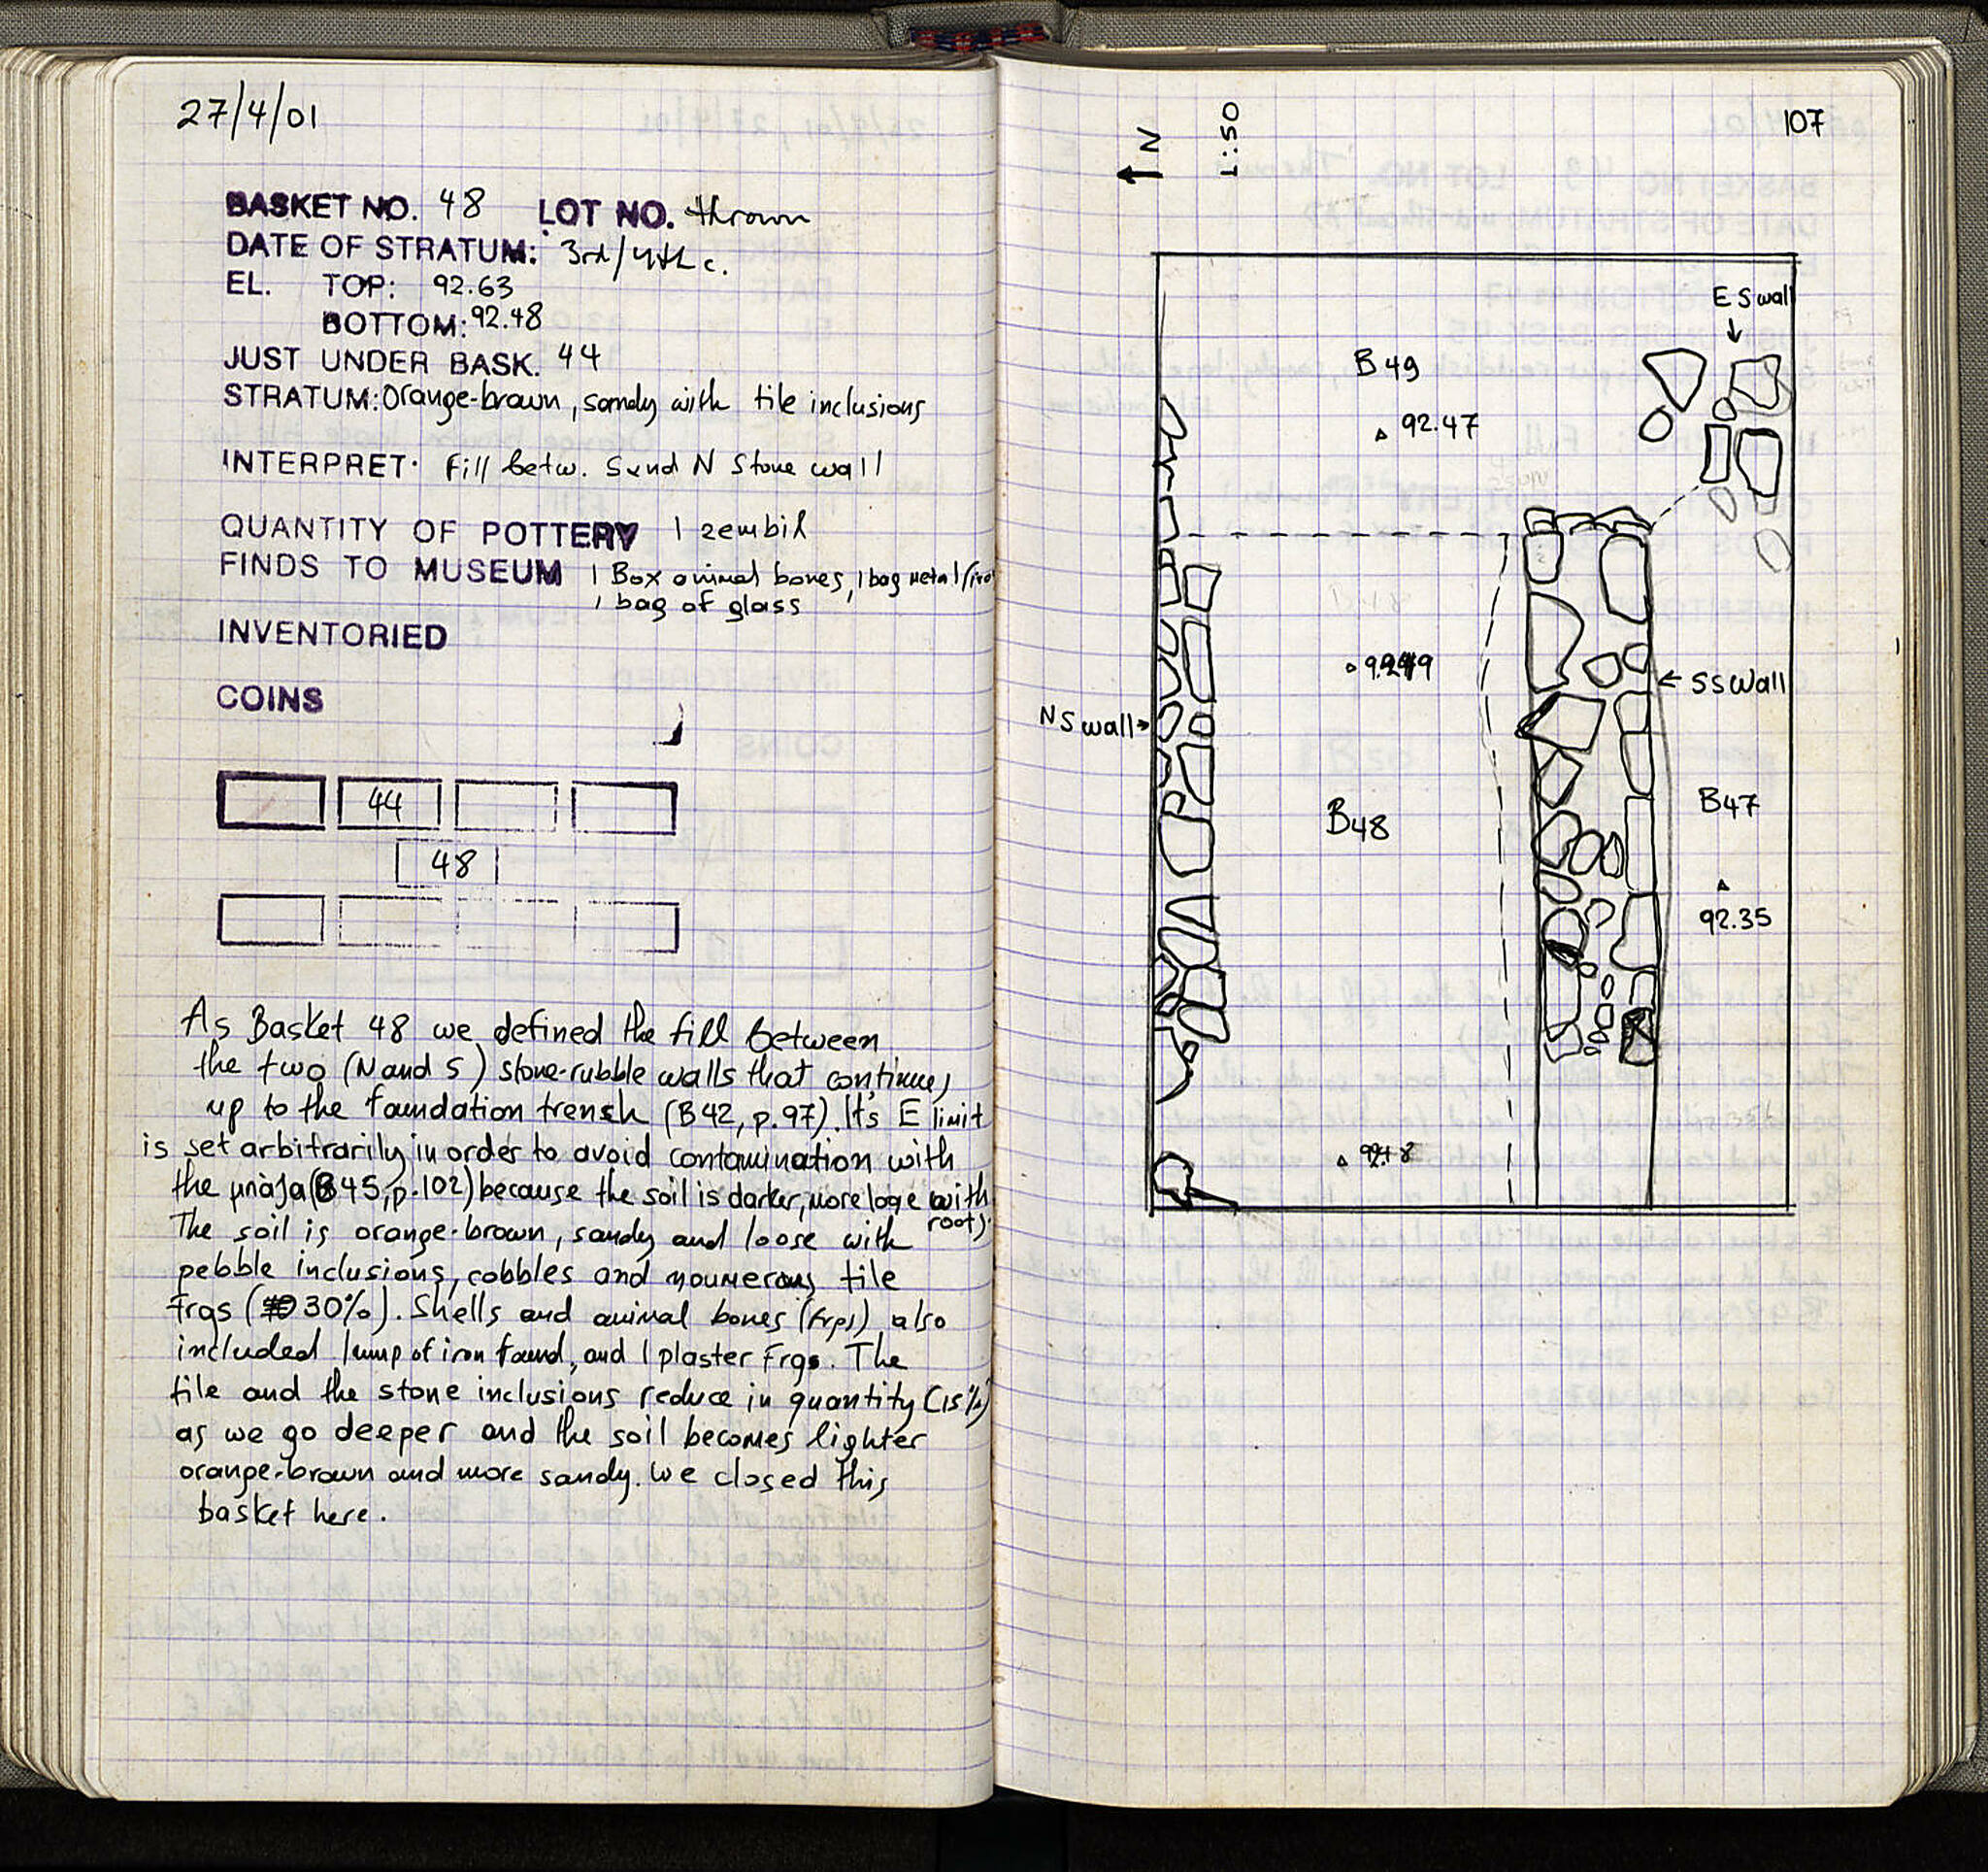 27/4/01
BASKET NO. 48 LOT NO. thrown
DATE OF STRATUM: 3rd/4th c.
EL. TOP: 92.63
BOTTOM: 92.48
JUST UNDER BASK. 44
STRATUM: Orange-brown, sandy with tile inclusions
INTERPRET. Fill betw. S and N Stone wall
QUANTITY OF POTTERY 1 zembil
FINDS TO MUSEUM 1 Box animal bones, 1 bag metal/iron
1 bag of glass
INVENTORIED
COINS
44
48
As Basket 48 we defined the fill between
the two (N and S) stone-rubble walls that continues
up to the foundation trensh (B42, p.97). It's E limit
is set arbitrarily in order to avoid contamination with
the μπάζα (B45, p.102) because the soil is darker, more loge with
roots.
The soil is orange-brown, sandy and loose with
pebble inclusions, cobbles and noumerous tile
frgs (30%). Shells and animal bones (frgs) also
included 1 lump of iron found, and 1 plaster Frgs. The
tile and the stone inclusions reduce in quantity (15%)
as we go deeper and the soil becomes lighter
orange-brown and more sandy. We closed this
basket here.
107
N
1:50
E S wall
B49
92.47
S S wall
N S wall
B48
B47
92.35